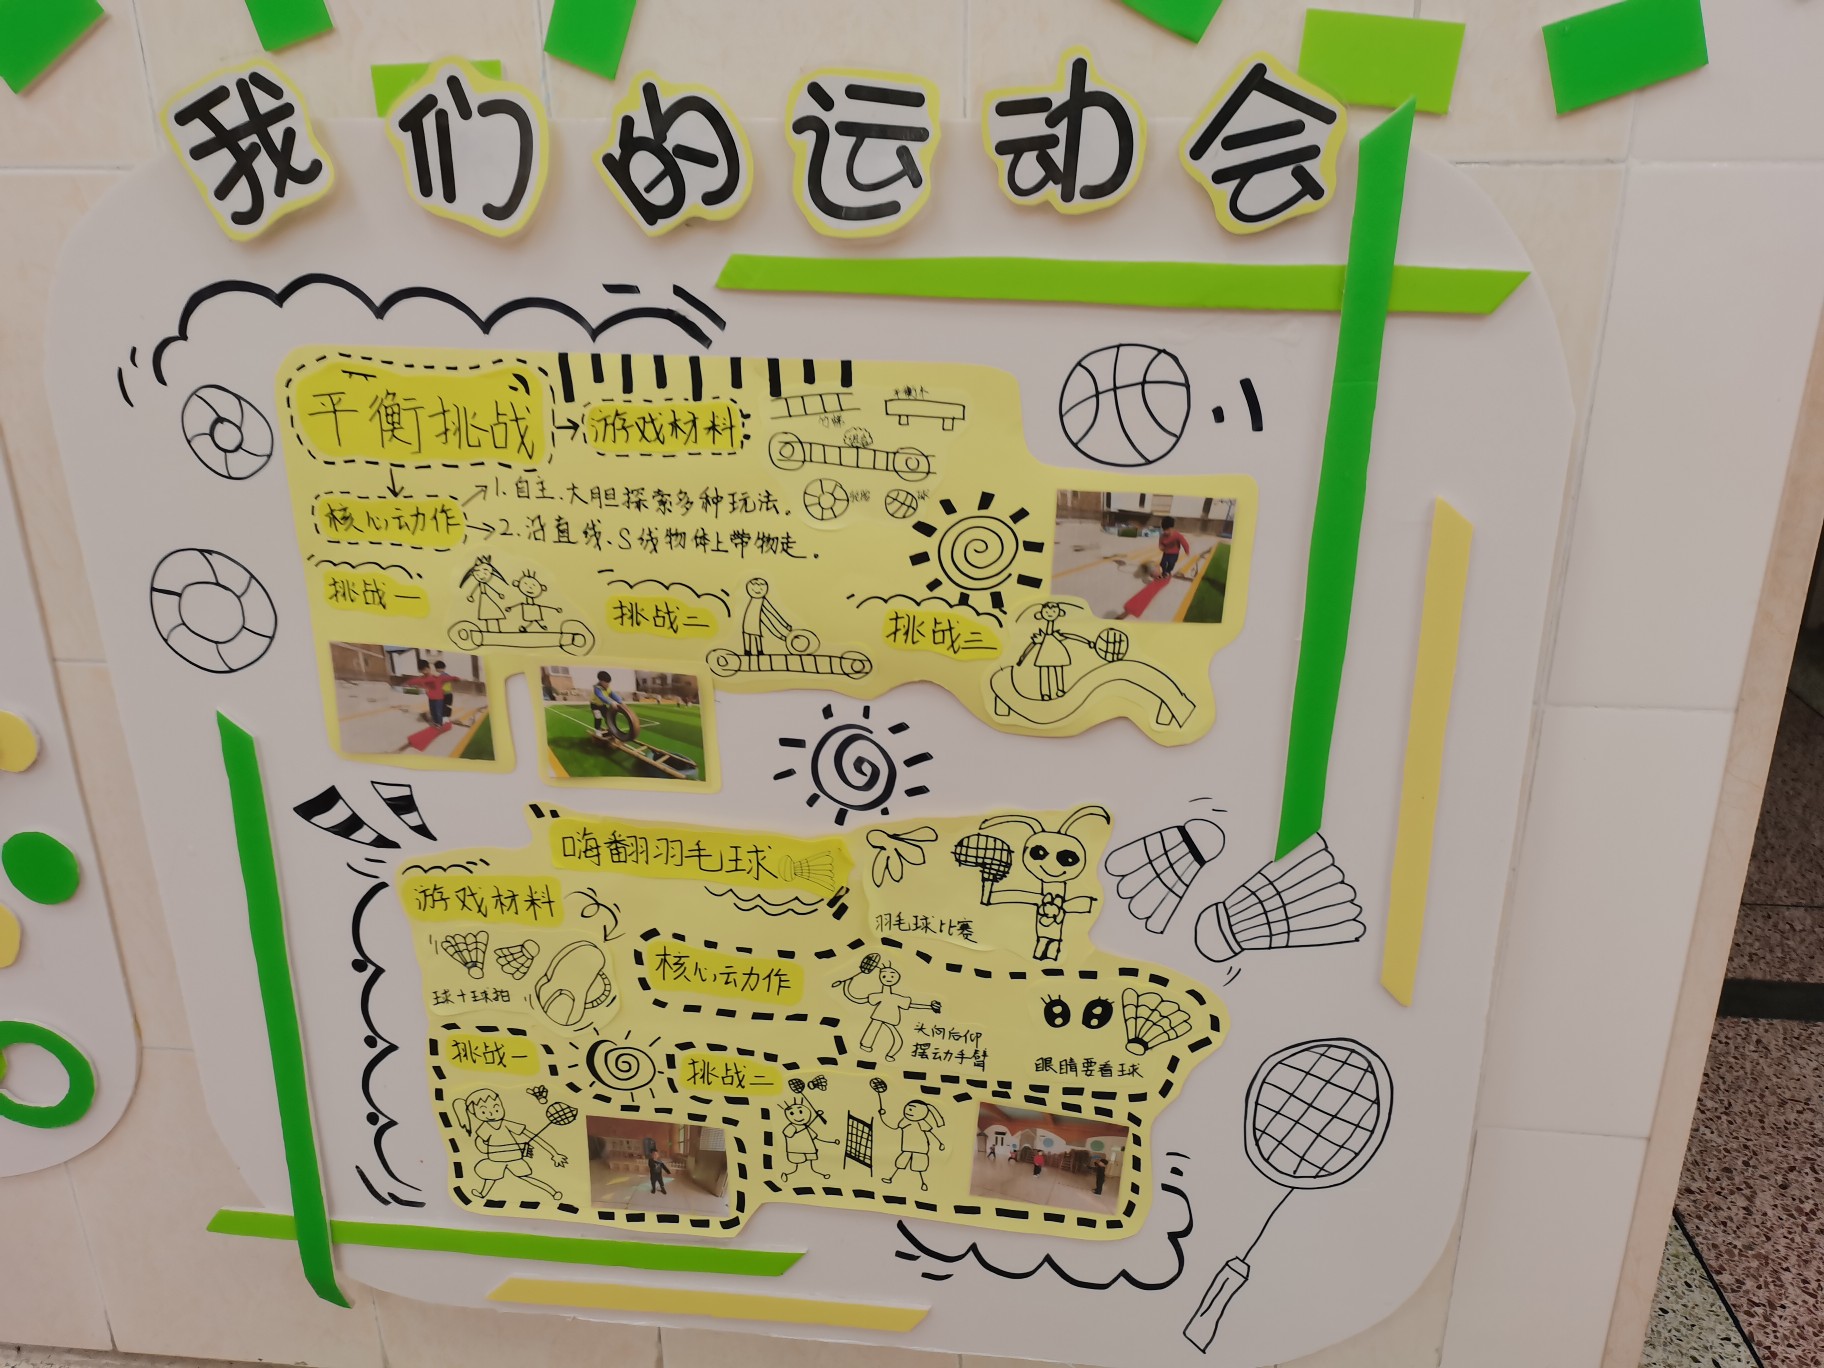 我们的运动会
平衡挑战
游戏材料
竹梯
平衡木
轮胎
球
核心动作
1.自主、大胆探索多种玩法。
2.沿直线、S线物体上带物走。
挑战一
挑战二
挑战三
嗨翻羽毛球
游戏材料
球+球拍
羽毛球比赛
核心动作
头向后仰
摆动手臂
眼睛要看球
挑战一
挑战二